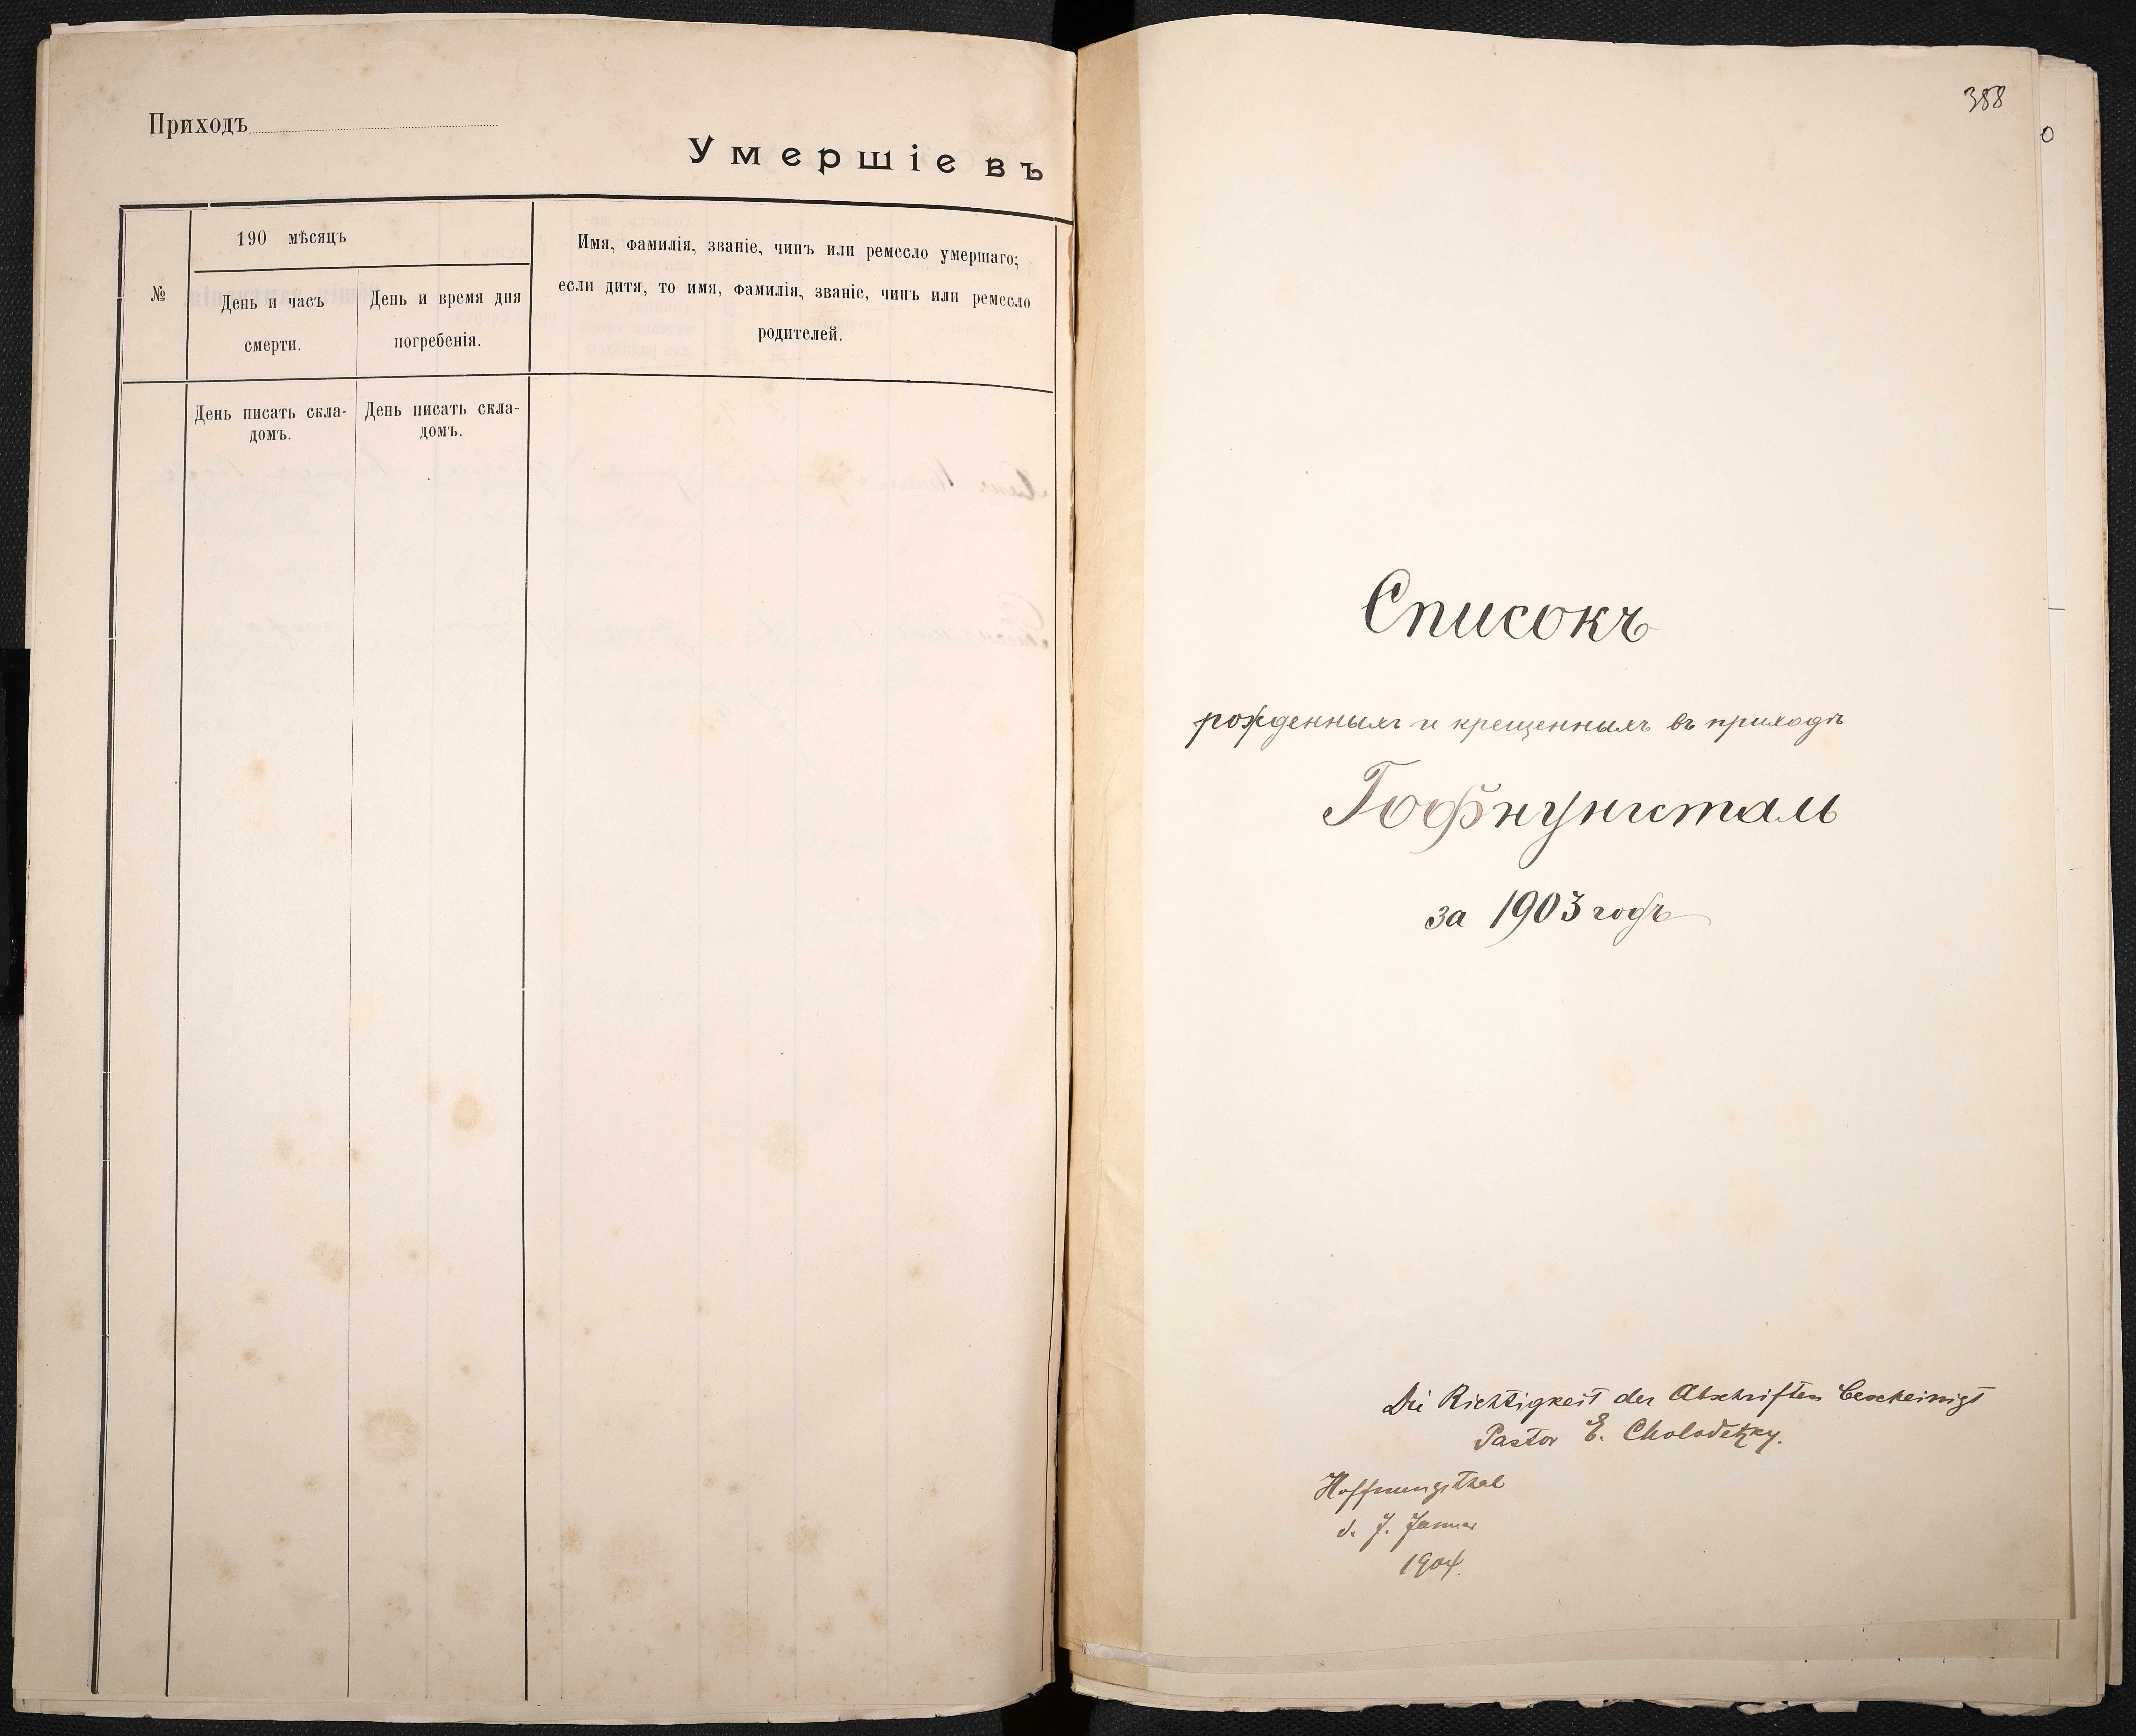 Приходъ
Умершіе въ
№
190 мѣсяцъ
День и часъ
смерти.
День и время дня
погребенія.
Имя, фамилія, званіе, чинъ или ремесло умершаго;
если дитя, то имя, фамилія, званіе, чинъ или ремесло
родителей.
День писать скла-
домъ.
День писать скла-
домъ.
388
Списокъ
рожденнымъ и крещеннымъ въ приходѣ
Гофнунгсталь
за 1903 годъ
Die Richtigkeit der Abschriften bescheinigt
Pastor E. Cholodetzky.
Hoffnungsthal
d. 7. Januar
1904.